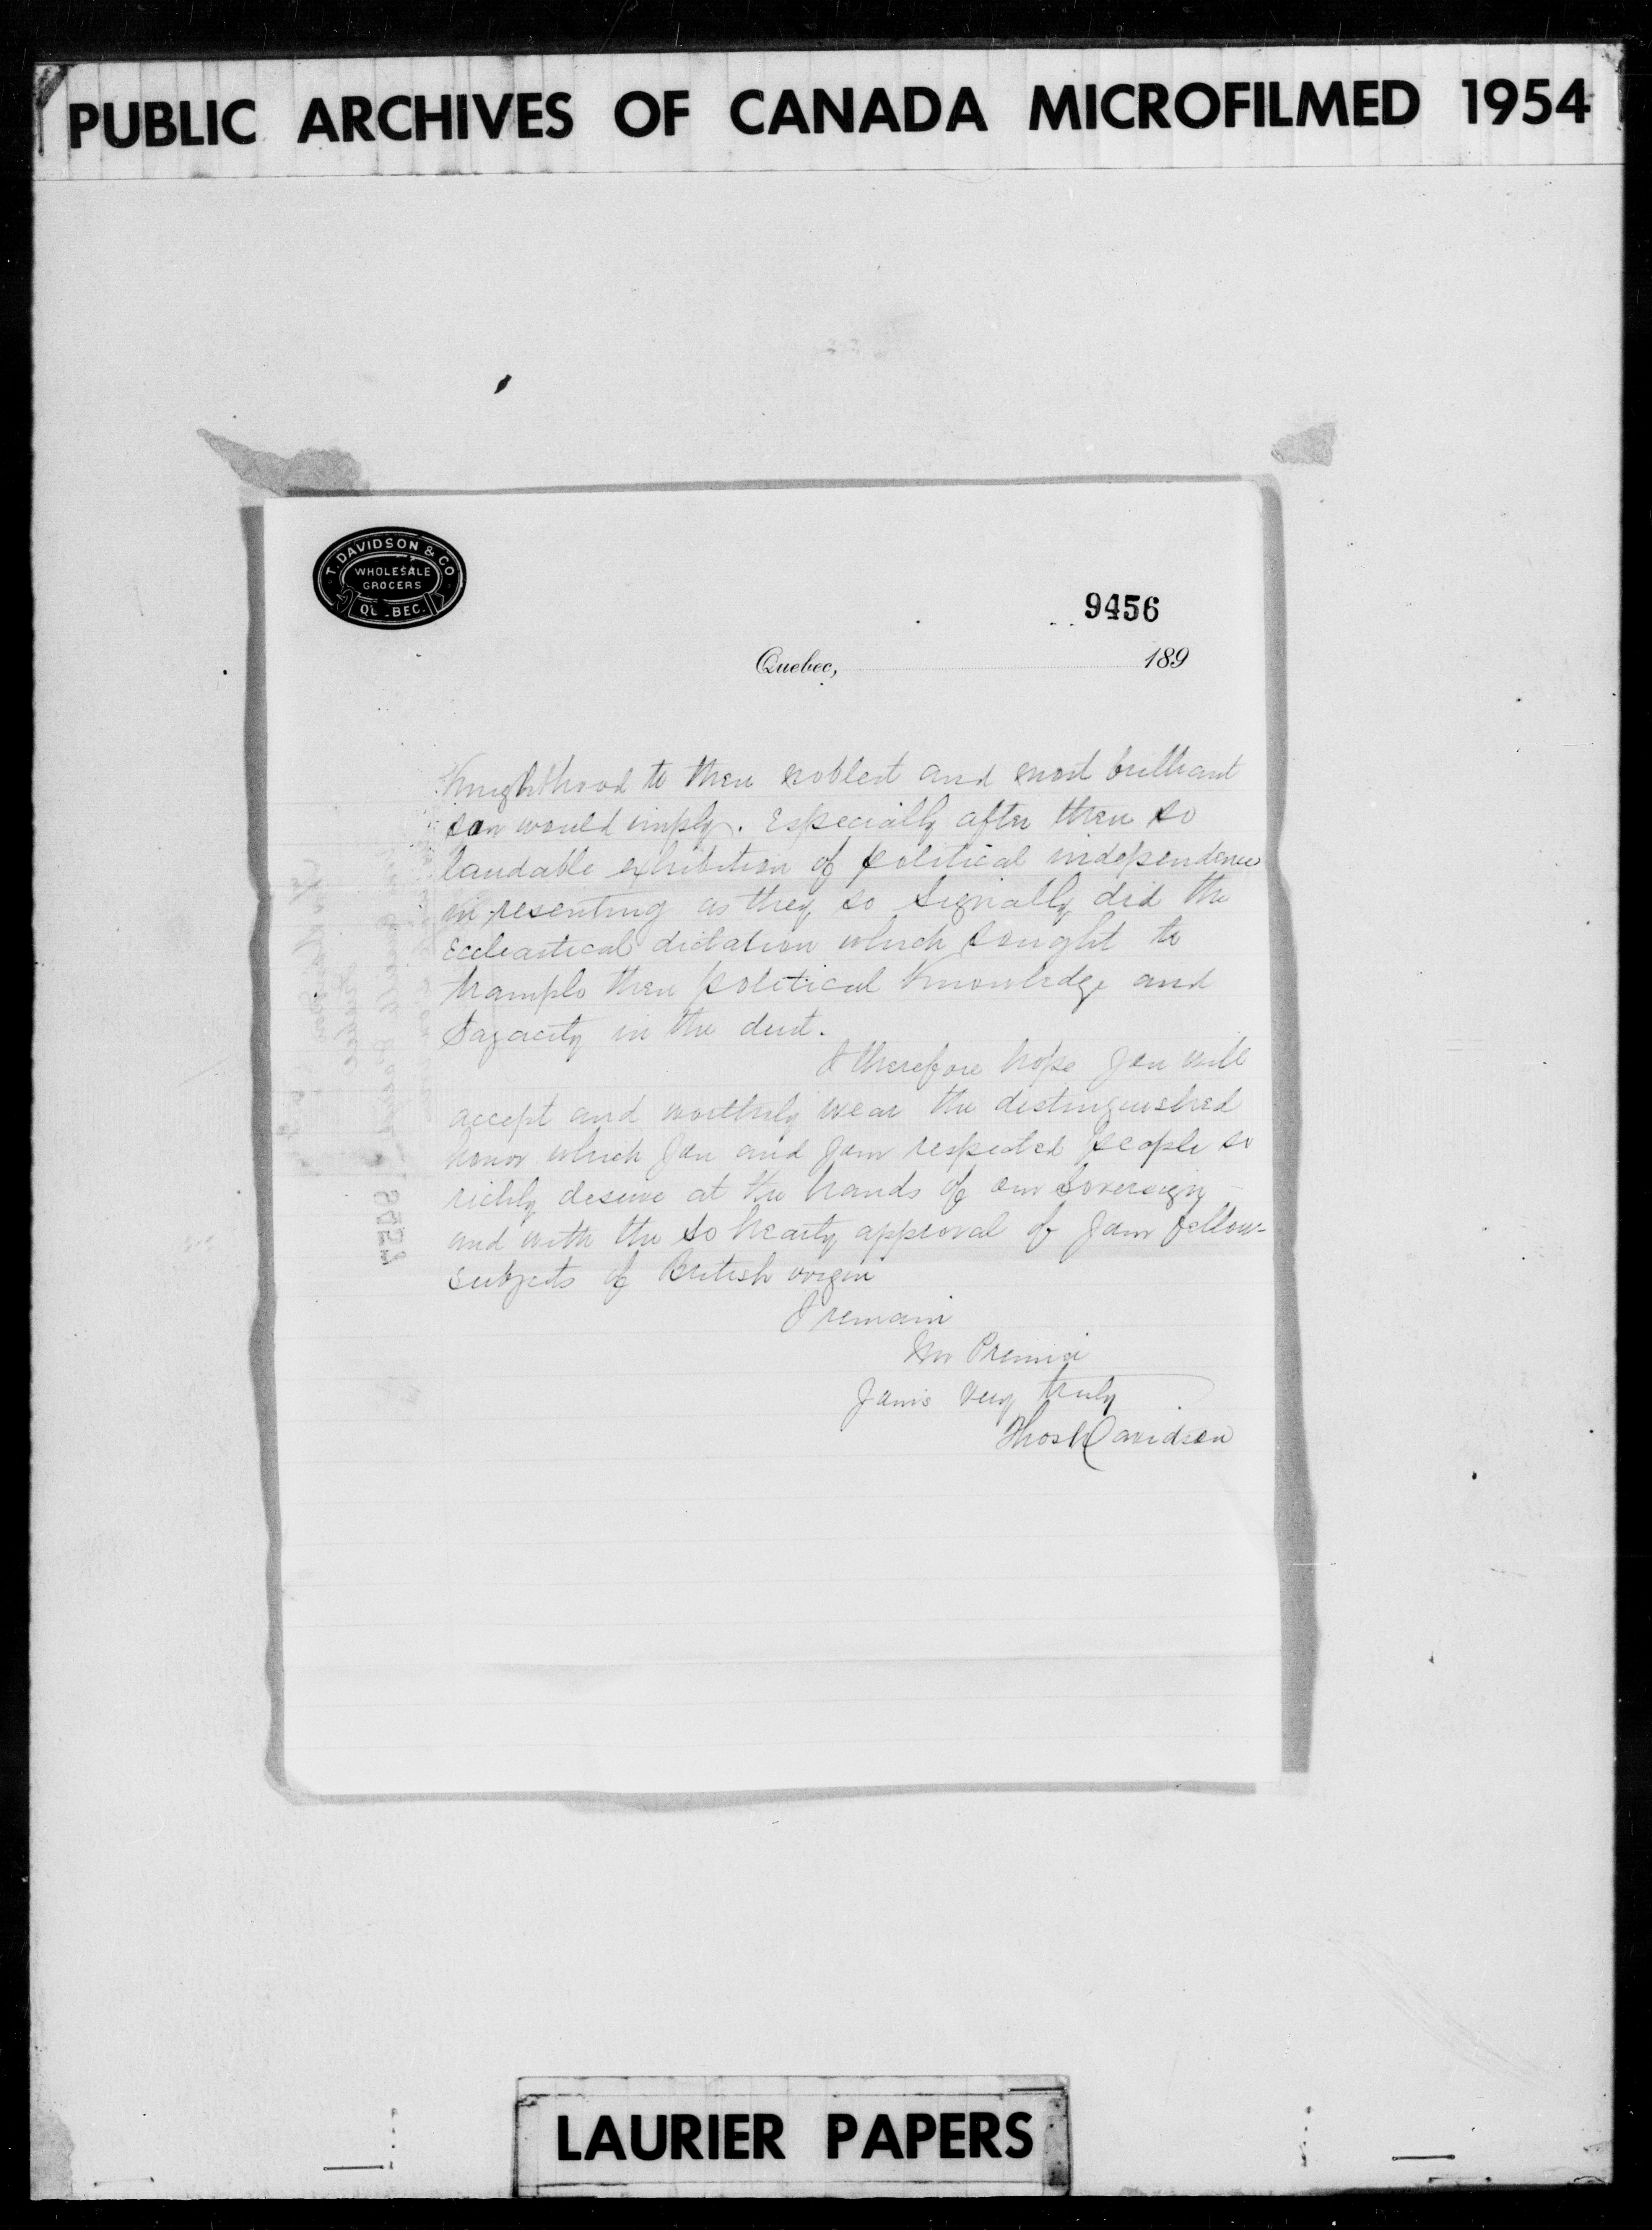 PUBLIC ARCHIVES OF CANADA MICROFILMED 1954
T. DAVIDSON & CO
WHOLESALE
GROCERS
QU_BEC.
9456
Quebec, 189
Knighthood to their noblest and most brilliant
son would imply. Especially after their so
laudable exhibition of political independence
in resenting as they so signally did the
Eccleastical dictation which sought to
trample their political knowledge and
Sagacity in the dust.
I therefore hope you will
accept and worthily wear the distinguished
honor which you and your respected people so
richly deserve at the hands of our Sovereign
and with the so hearty approval of your fellow-
subjects of British origin
I remain
Mr Premier
Yours very truly
Thos H Davidson
LAURIER PAPERS